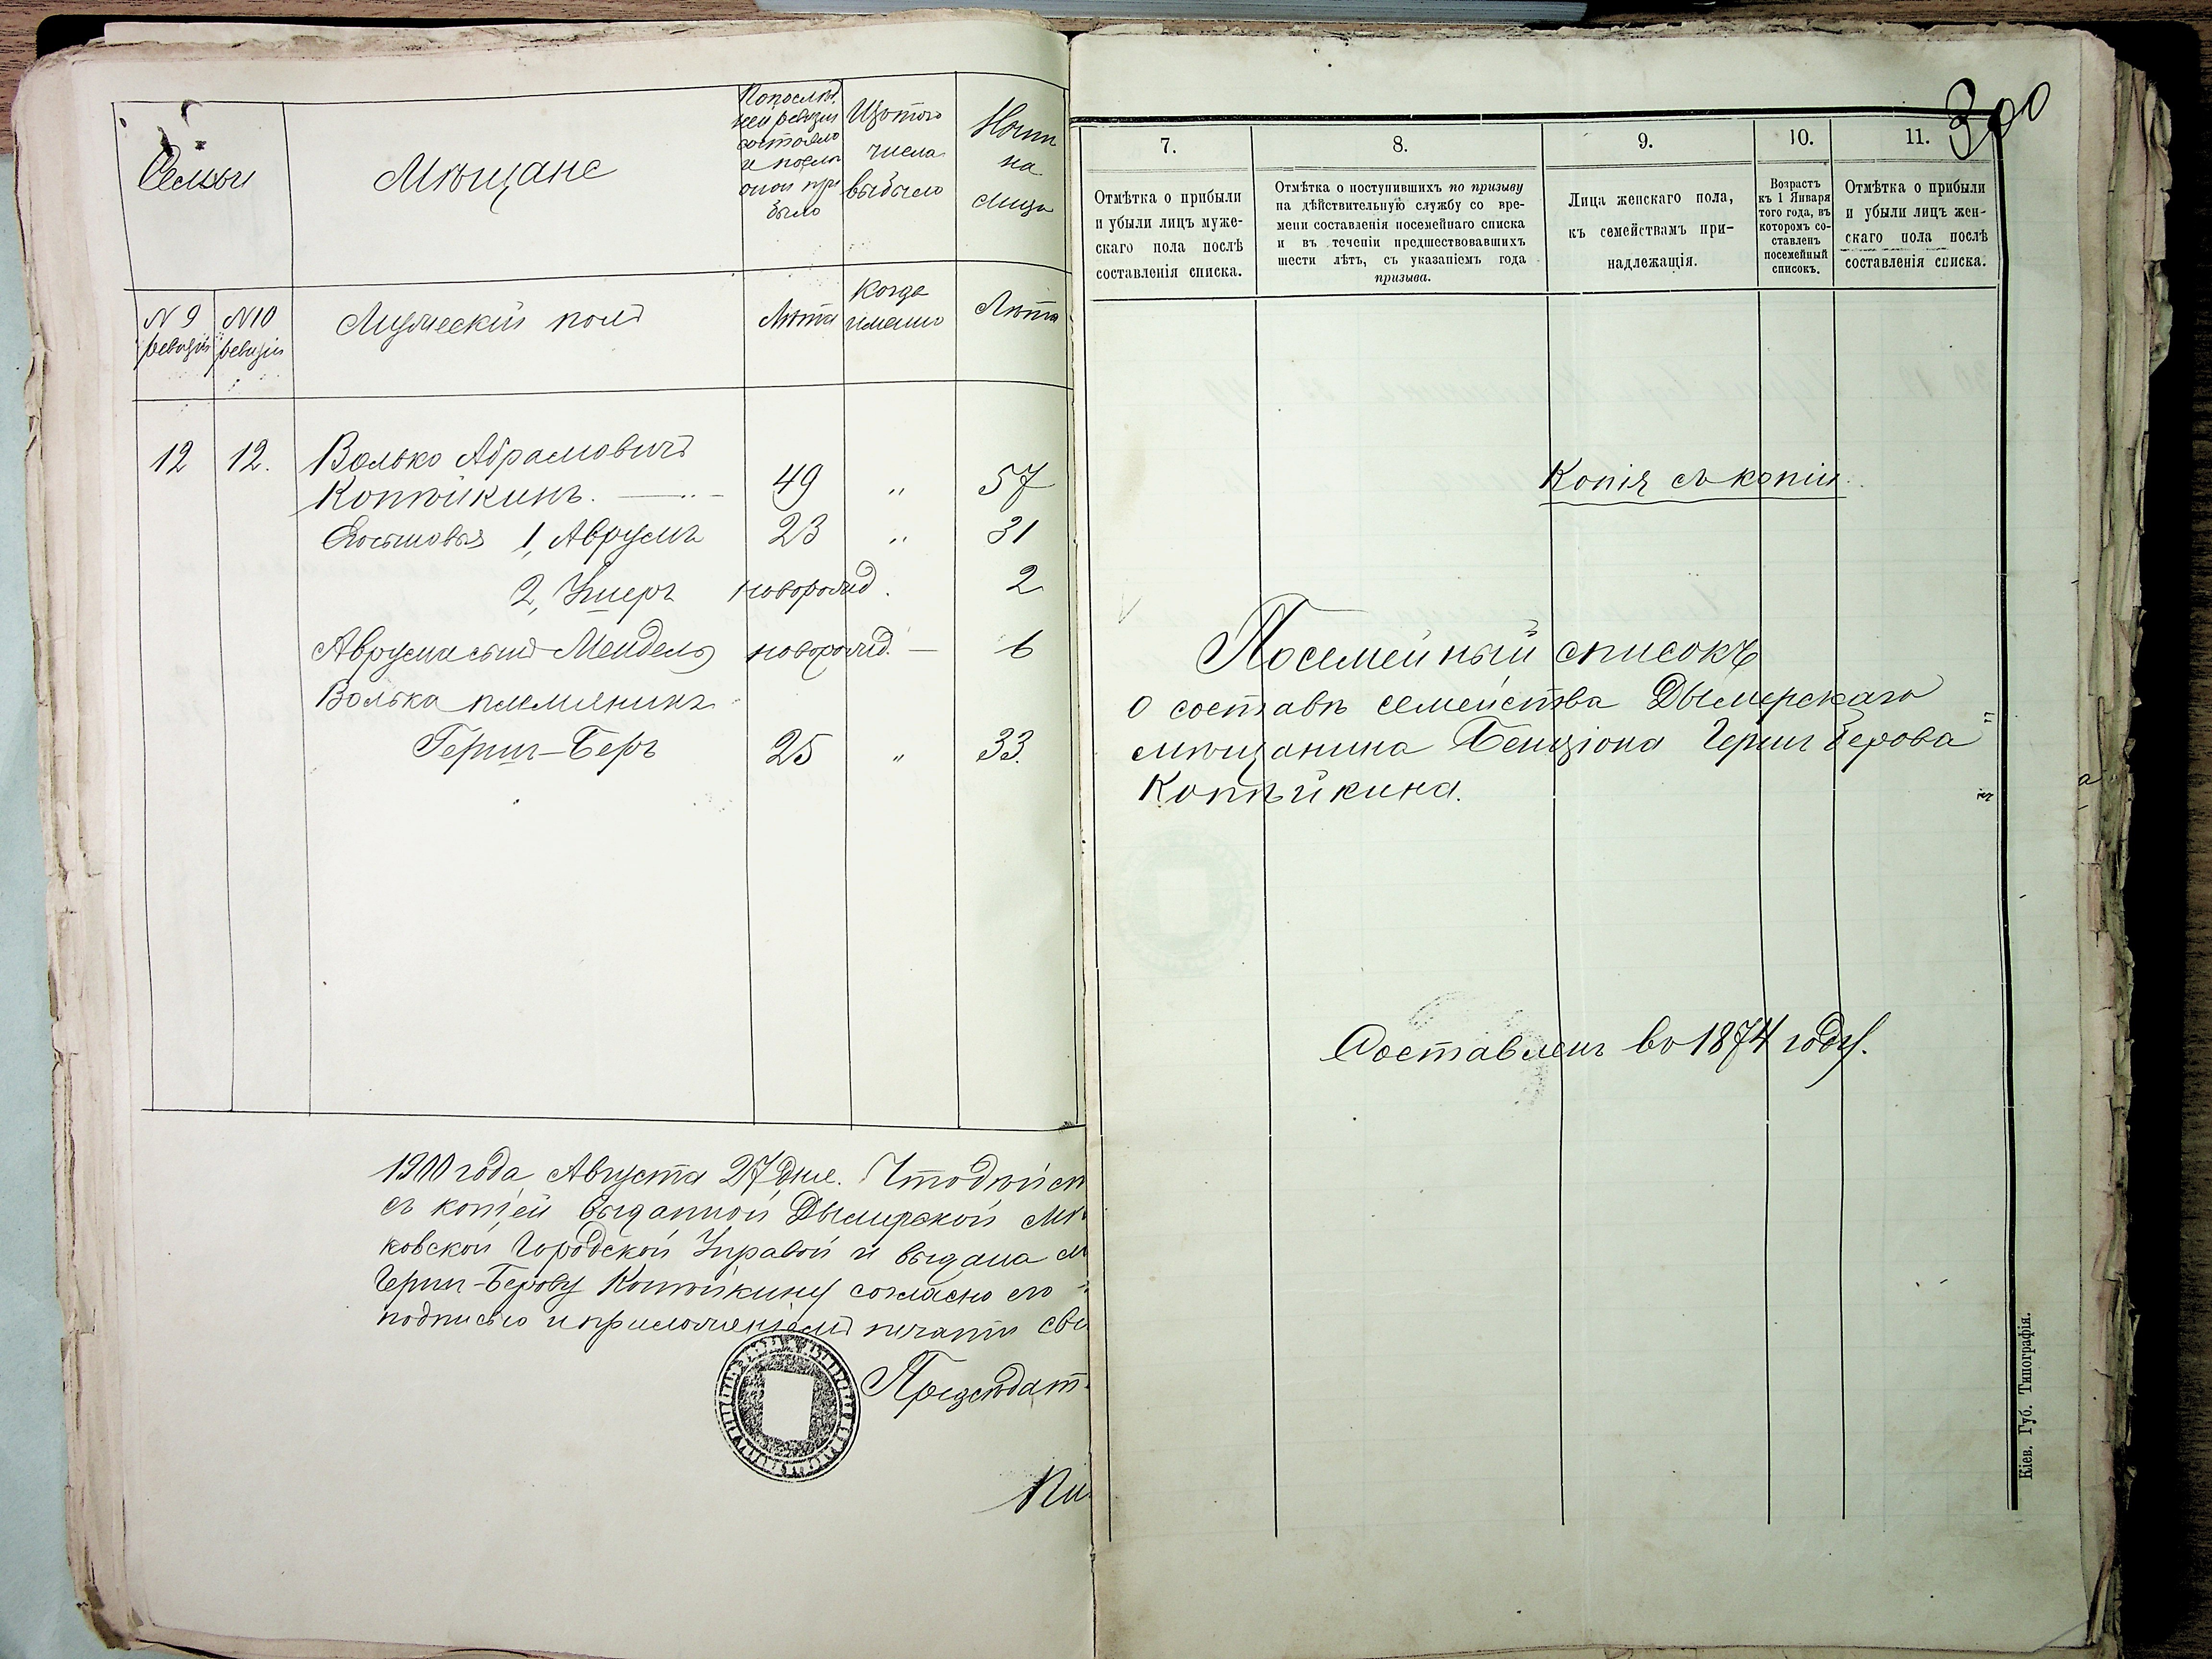 Семьи
Мѣщане
По послѣд.
ней ревизіи
состояло
и послѣ
оной при
было
Изъ того
числа
выбыло
Нынѣ
на
лицо
N 9
ревизіи
N 10
ревизіи
Мужескій полъ
Лѣта
Когда
именно
Лѣта
12 12. Волько Абрамовичъ
Копѣйкинъ. 49 " 57
сыновья 1, Аврумъ 23 " 31
2, Ушеръ новорожд. 2
Аврума сынъ Мендель новорожд. — 6
Волька племяникъ
Гершъ-Беръ 25 " 33.
1900 года Августа 27 дня. Что дѣйст
съ копіей выданной Дымерской Мѣ
ковской Городской Управой и выдана м
Герш-Берову Копѣйкину согласно его
подписью и приложеніемъ печати сви
Предсѣдат
300
7.
Отмѣтка о прибыли
и убыли лицъ муже-
скаго пола послѣ
составленія списка.
8.
Отмѣтка о поступившихъ по призыву
на дѣйствительную службу со вре-
мени составленія посемейнаго списка
и въ теченіи предшествовавшихъ
шести лѣтъ, съ указаніемъ года
призыва.
9.
Лица женскаго пола,
къ семействамъ при-
надлежащія.
10.
Возрастъ
къ 1 Января
того года, въ
которомъ со-
ставленъ
посемейный
списокъ.
11.
Отмѣтка о прибыли
и убыли лицъ жен-
скаго пола послѣ
составленія списка.
Копія съ копіи.
Посемейный списокъ
о составѣ семейства Дымерскаго
мѣщанина Бенціона Герш Берова
Копѣйкина.
Составленъ во 1874 году.
Кіев. Губ. Типографія.